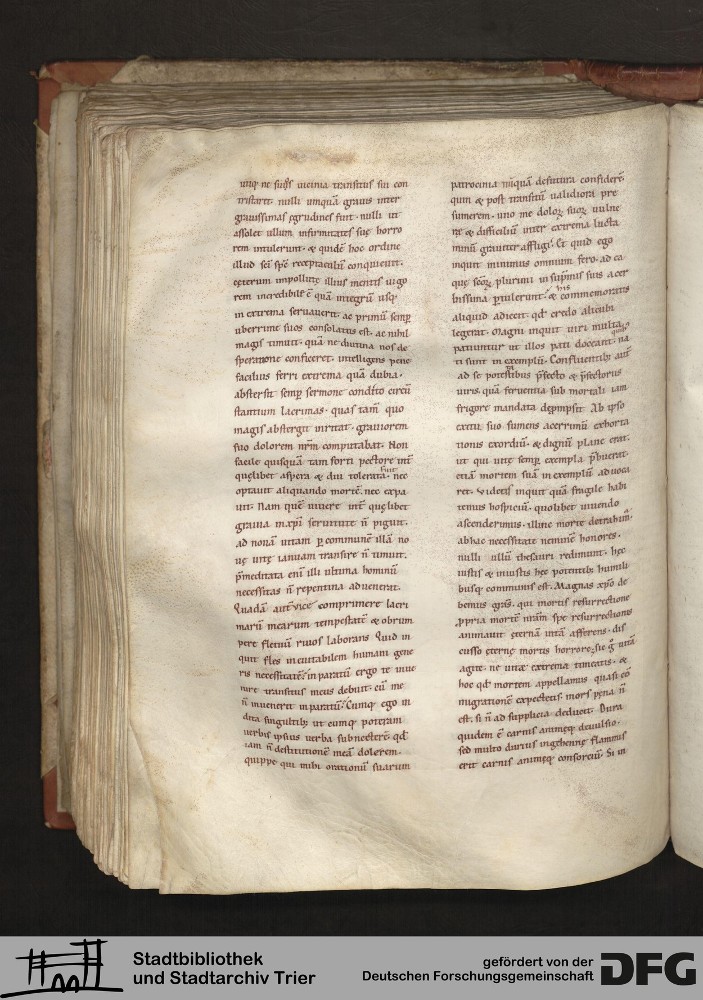 usq; ne suos vicinia transitus sui con
tristaret. nulli umquā gravis inter
gravissimas egritudines fuit. nulli ut
assolet ullum infirmitatis suę horro
rem intulerunt. & quidē hoc ordine
illud sc̄i sp̄c receptaculū conquievit.
ceterum impollutę illius mentis vigo
rem incredibile ē quā integrū usq;
in extrema servaverit. ac primū semp
uberrime suos consolatus est. ac nihil
magis timuit. quā ne diutina nos de
speratione conficeret. intelligens pene
facilius ferri extrema quā dubia.
abstersit semp sermone condito circū
stantium lacrimas. quas tam̄ quo
magis abstergit irritat. graviorem
suo dolorem nr̄m computabat. Non
facile quisquā tam forti pectore int̄
quęlibet aspera & diu tolerata. nec
optavit aliquando mortē. nec expa
vit. Nam quē vivere int̄ quęlibet
gravia in xp̄i servitute n̄ piguit.
ad novā vitam p communē illā no
vę vitę ianuam transire n̄ timuit.
p̄meditata eni illi ultima hominū
necessitas n̄ repentina advenerat.
Quadā aut̄ vice comprimere lacri
marū mearum tempestatē & obrum
pere fletuū rivos laborans. Quid in
quit fles inevitabilem humanę gene
ris necessitatē? inparatū ergo te inve
nire transitus meus debuit. cū me
n̄ invenerit inparatū? Cumq; ego in
dita singultib; ut cumq; poteram
verbis ipsius verba subnecterē qd̄
iam n̄ destitutionē meā dolerem.
quippe qui mihi orationū suarum
patrocinia nūquā defutura considerē.
qum & post transitū validiora pre
sumerem. uno me doloꝝ suoꝝ vulne
re & difficiliū inter extrema lucta
minū graviter affligi. Et quid ego
inquit minimus omnium fero. ad ea
quę sc̄oꝝ plurimi in sup̄mis suis acer
bissima ptulerunt? & commemoratis
aliquid adiecit. qd̄ credo alicubi
legerat. Magni inquit viri multa
patiuntur ut illos pati doceant. na
ti sunt in exemplū. Confluentib; aut̄
ad se potestatibus p̄fecto & p̄fectorus
viris. quā ferventia sub mortali iam
frigore mandata depmpsit. Ab ipso
exitu suo sumens acerrimū exhorta
tionis exordiū. & dignū plane erat.
ut qui vitę semp exempla p̄buerat.
etiā mortem suā in exemplū advoca
ret. Videtis inquit quā fragile habi
temus hospiciū. quolibet vivendo
ascenderimus. illinc morte detrahimr̄.
ab hac necessitate neminē honores.
nulli ullū thesauri redimunt. hęc
iustis & iniustis hęc potentib; humili
busq; communis est. Magnas xp̄o de
bemus gras. qui mortis resurrectione
ppria mortē nr̄am spe resurrectionis
animavit. eternā vitā afferens. dis
cusso eternę mortis horrore. sic g vitā
agite. ne vitę extrema timeatis. &
hoc qd̄ mortem appellamus quasi eo
migrationē expectetis. mors pena n̄
est. si n̄ ad supplicia deducit. Dura
quidem ē carnis animęq; divulsio.
sed multo durius in gehennę flammis
erit carnis animęq; consorciū. Si in
Stadtbibliothek
und Stadtarchiv Trier
gefördert von der
Deutschen Forschungsgemeinschaft
DFG